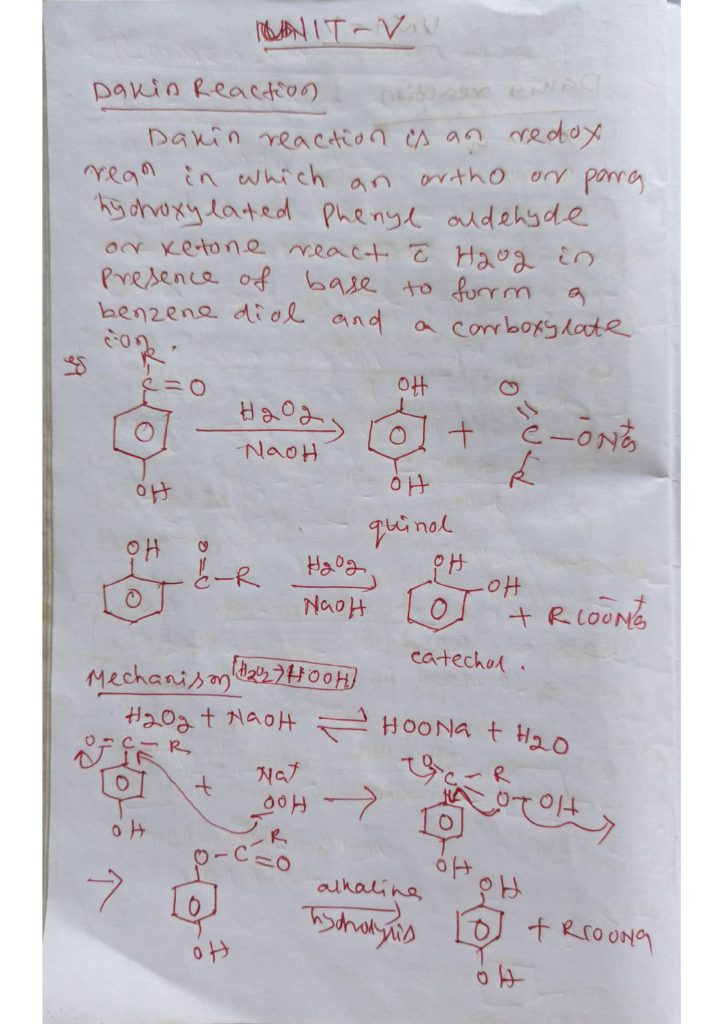 UNIT-V
Dakin Reaction
Dakin reaction is an redox
reaⁿ in which an ortho or para
hydroxylated phenyl aldehyde
or ketone react c̄ H2O2 in
presence of base to form a
benzene diol and a carboxylate
ion.
eg
R
C=O
OH
H2O2
NaOH
OH
OH
quinol
+
O
C-ŌNa⁺
R
OH
O
C-R
H2O2
NaOH
OH
OH
catechol.
+ RCOŌNa⁺
Mechanism H2O2→HOOH
H2O2 + NaOH ⇌ HOONa + H2O
O=C-R
OH
+
Na⁺
OOH
→
⁻O
C-R
O-OH
OH
→
O-C=O
R
OH
alkaline
hydrolysis
OH
OH
+ RCOONa